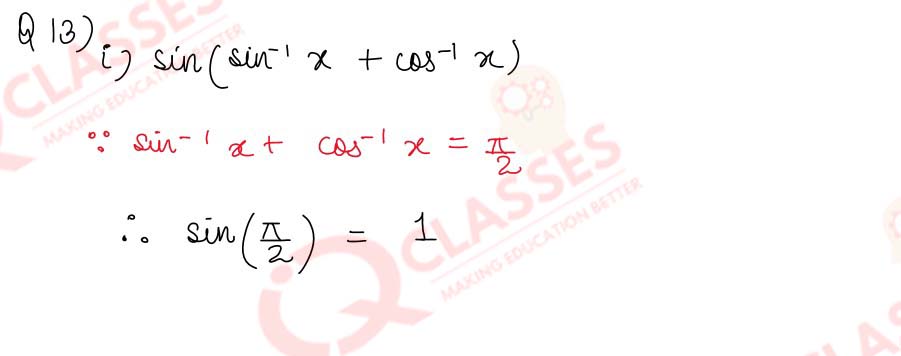 Q 13)
i) sin(sin⁻¹ x + cos⁻¹ x)
∵ sin⁻¹ x + cos⁻¹ x = π/2
∴ sin(π/2) = 1
CLASSES
MAKING EDUCATION BETTER
iQ CLASSES
MAKING EDUCATION BETTER